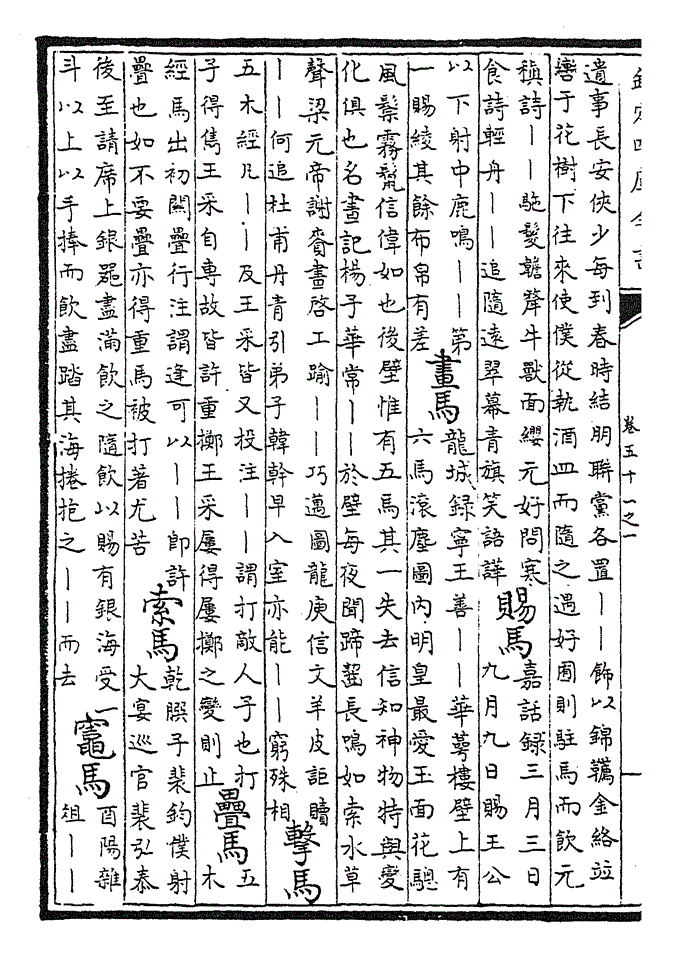 卷五十一之一
一
遺事長安俠少每到春時結朋聯黨各置——飾以錦韉金絡並
轡于花樹下往來使僕從執酒皿而隨之遇好囿則駐馬而飲元
稹詩——馳髮韂犛牛獸面纓元好問寒
食詩輕丹——追隨遠翠幕青旗笑語譁
賜馬
嘉話錄三月三日
九月九日賜王公
以下射中鹿鳴——第
一賜綾其餘布帛有差
畫馬
龍城錄寧王善——華萼樓壁上有
六馬滾塵圖內明皇最愛玉面花驄
風鬃霧鬣信偉如也後壁惟有五馬其一失去信知神物特與變
化俱也名畫記楊子華常——於壁每夜聞蹄齧長鳴如索水草
聲梁元帝謝賚畫啓工踰——巧邁圖龍庾信文羊皮詎贖
——何追杜甫丹青引弟子韓幹早入室亦能——窮殊相
擊馬
五木經凡——及王采皆又投注——謂打敵人子也打
子得雋王采自專故皆許重擲王采屢得屢擲之變則止
疊馬
五
木
經馬出初關疊行注謂逢可以——即許
疊也如不要疊亦得重馬被打著尤苦
索馬
乾𦠆子裴鈞僕射
大宴巡官裴弘泰
後至請席上銀器盡滿飲之隨飲以賜有銀海受一
斗以上以手捧而飲盡踏其海捲抱之——而去
竈馬
酉陽雜
俎——